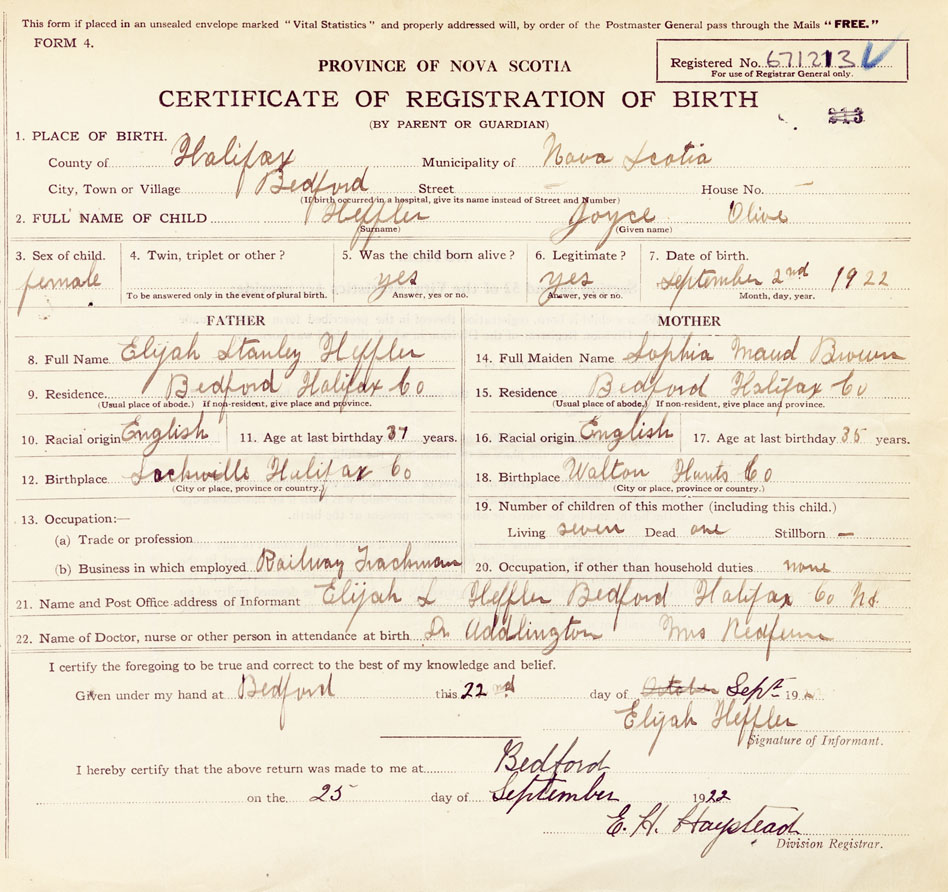 This form if placed in an unsealed envelope marked "Vital Statistics" and properly addressed will, by order of the Postmaster General pass through the Mails "FREE."
FORM 4.
Registered No. 671213
For use of Registrar General only.
PROVINCE OF NOVA SCOTIA
CERTIFICATE OF REGISTRATION OF BIRTH
(BY PARENT OR GUARDIAN)
213
1. PLACE OF BIRTH.
County of Halifax Municipality of Nova Scotia
City, Town or Village Bedford Street — House No. —
(If birth occurred in a hospital, give its name instead of Street and Number)
2. FULL NAME OF CHILD Heffler Joyce Olive
(Surname) (Given name)
3. Sex of child. 4. Twin, triplet or other? 5. Was the child born alive? 6. Legitimate? 7. Date of birth.
female yes yes September 2nd 1922
To be answered only in the event of plural birth. Answer, yes or no. Answer, yes or no. Month, day, year.
FATHER MOTHER
8. Full Name Elijah Stanley Heffler 14. Full Maiden Name Sophia Maud Brown
9. Residence Bedford Halifax Co 15. Residence Bedford Halifax Co
(Usual place of abode.) If non-resident, give place and province. (Usual place of abode.) If non-resident, give place and province.
10. Racial origin English 11. Age at last birthday 37 years. 16. Racial origin English 17. Age at last birthday 35 years.
12. Birthplace Halifax Co 18. Birthplace Walton Hunts Co
(City or place, province or country.) (City or place, province or country.)
19. Number of children of this mother (including this child.)
13. Occupation:—
Living seven Dead one Stillborn —
(a) Trade or profession
(b) Business in which employed Railway Trackman 20. Occupation, if other than household duties none
21. Name and Post Office address of Informant Elijah Heffler Bedford Halifax Co NS
22. Name of Doctor, nurse or other person in attendance at birth Dr Addlington Mrs Redfern
I certify the foregoing to be true and correct to the best of my knowledge and belief.
Given under my hand at Bedford this 22nd day of October Sept 19
Elijah Heffler
Signature of Informant.
I hereby certify that the above return was made to me at Bedford
on the 25 day of September 1922
E. H. Haystead
Division Registrar.